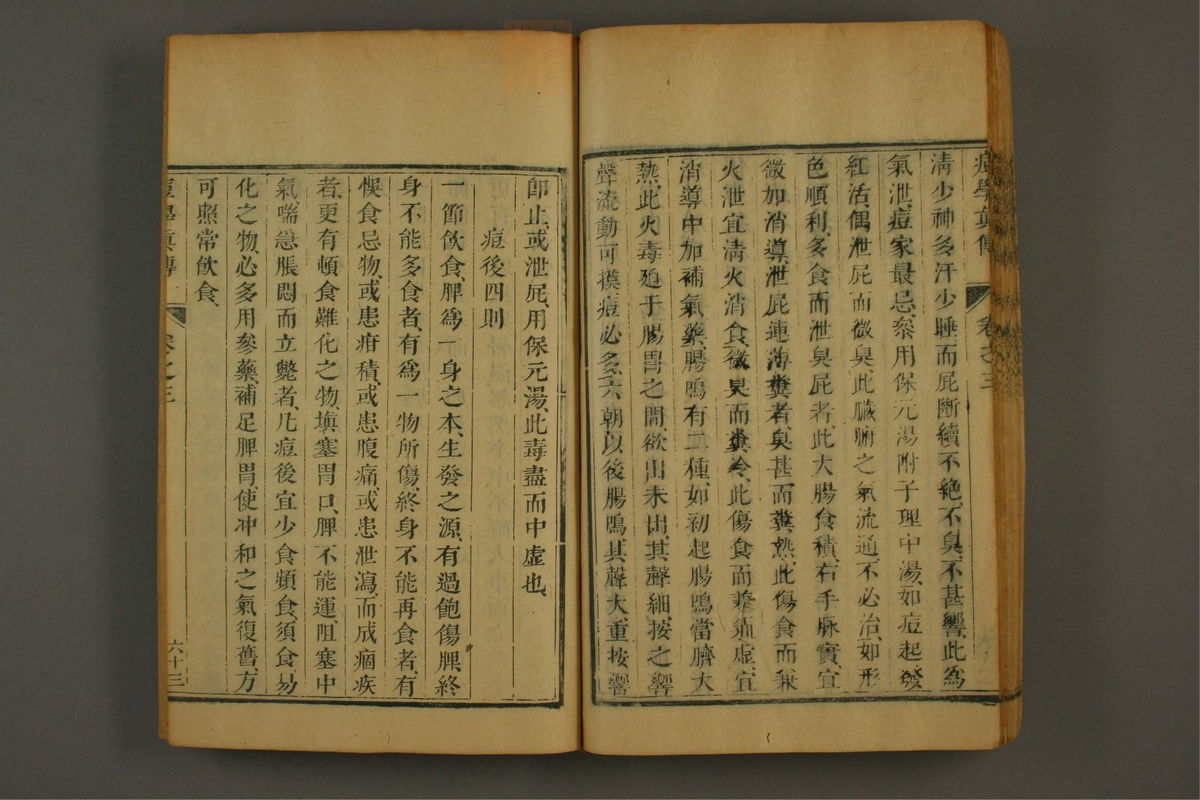 痘學真傳 卷之三
清少神多汗少睡而屁斷續不絶、不臭、不甚響、此爲
氣泄、痘家最忌、叅用保元湯附子理中湯、如痘起發
紅活、偶泄屁而微臭、此臟腑之氣流通、不必治、如形
色順利、多食而泄臭屁者、此大腸食積、右手脉實、宜
微加消導、泄屁連薄糞者、臭甚而糞熱、此傷食而兼
火泄、宜淸火消食、微臭而糞冷、此傷食而兼虛、宜
消導中加補氣藥、腸鳴有二種、如初起腸鳴當臍大
熱、此火毒廹于腸胃之間、欲出未出、其聲細、按之響
聲流動可摸、痘必多、六朝以後腸鳴、其聲大、重按響
卽止、或泄屁、用保元湯、此毒盡而中虛也、
痘後四則
一節飲食、脾爲一身之本、生發之源、有過飽傷脾、終
身不能多食者、有爲一物所傷、終身不能再食者、有
悞食忌物、或患疳積、或患腹痛、或患泄瀉、而成痼疾
者、更有頓食難化之物、塡塞胃口、脾不能運、阻塞中
氣、喘急脹悶而立斃者、凡痘後宜少食頻食、須食易
化之物、必多用參藥、補足脾胃、使冲和之氣復舊、方
可照常飲食、
痘學真傳 卷之三 六十三